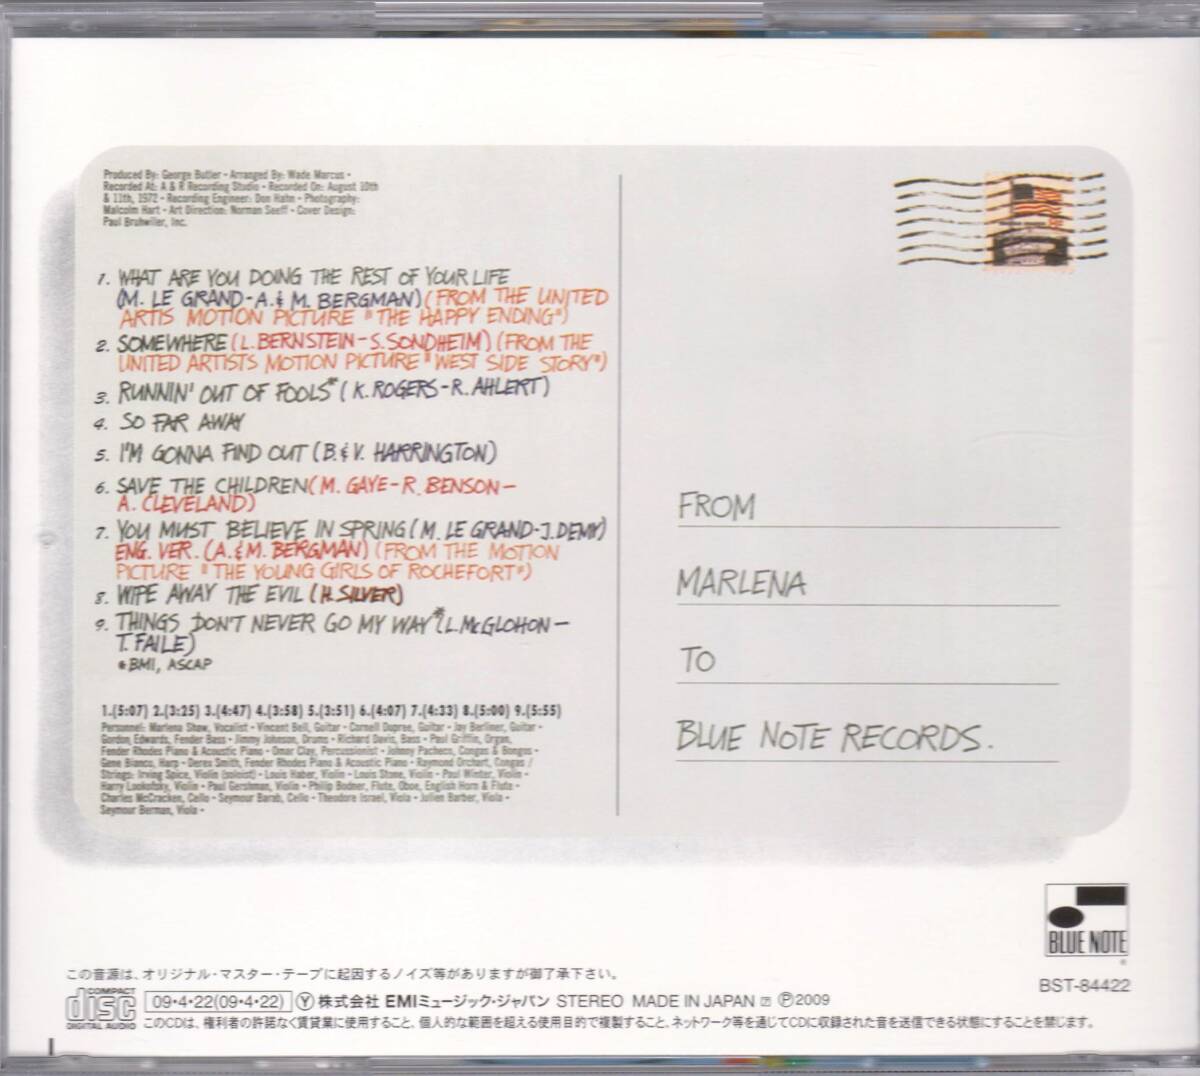 Produced By: George Butler • Arranged By: Wade Marcus •
Recorded At: A & R Recording Studio • Recorded On: August 10th
& 11th, 1972 • Recording Engineer: Don Hahn • Photography:
Malcolm Hart • Art Direction: Norman Seeff • Cover Design:
Paul Bruhwiler, Inc.
1. WHAT ARE YOU DOING THE REST OF YOUR LIFE
(M. LE GRAND-A. & M. BERGMAN) (FROM THE UNITED
ARTIS MOTION PICTURE "THE HAPPY ENDING")
2. SOMEWHERE (L. BERNSTEIN-S. SONDHEIM) (FROM THE
UNITED ARTISTS MOTION PICTURE "WEST SIDE STORY")
3. RUNNIN' OUT OF FOOLS* (K. ROGERS-R. AHLERT)
4. SO FAR AWAY
5. I'M GONNA FIND OUT (B. & V. HARRINGTON)
6. SAVE THE CHILDREN (M. GAYE-R. BENSON-
A. CLEVELAND)
7. YOU MUST BELIEVE IN SPRING (M. LE GRAND-J. DEMY)
ENG. VER. (A. & M. BERGMAN) (FROM THE MOTION
PICTURE "THE YOUNG GIRLS OF ROCHEFORT")
8. WIPE AWAY THE EVIL (H. SILVER)
9. THINGS DON'T NEVER GO MY WAY* (L. McGLOHON-
T. FAILE)
*BMI, ASCAP
1.(5:07) 2.(3:25) 3.(4:47) 4.(3:58) 5.(3:51) 6.(4:07) 7.(4:33) 8.(5:00) 9.(5:55)
Personnel: Marlena Shaw, Vocalist • Vincent Bell, Guitar • Cornell Dupree, Guitar • Jay Berliner, Guitar •
Gordon Edwards, Fender Bass • Jimmy Johnson, Drums • Richard Davis, Bass • Paul Griffin, Organ,
Fender Rhodes Piano & Acoustic Piano • Omar Clay, Percussionist • Johnny Pacheco, Congas & Bongos •
Gene Bianco, Harp • Derek Smith, Fender Rhodes Piano & Acoustic Piano • Raymond Orchart, Congas /
Strings: Irving Spice, Violin (soloist) • Louis Haber, Violin • Louis Stone, Violin • Paul Winter, Violin •
Harry Lookofsky, Violin • Paul Gershman, Violin • Philip Bodner, Flute, Oboe, English Horn & Flute •
Charles McCracken, Cello • Seymour Barab, Cello • Theodore Israel, Viola • Julien Barber, Viola •
Seymour Berman, Viola •
FROM
MARLENA
TO
BLUE NOTE RECORDS.
BLUE NOTE
®
BST-84422
この音源は、オリジナル・マスター・テープに起因するノイズ等がありますが御了承下さい。
COMPACT
disc
DIGITAL AUDIO
09・4・22(09・4・22) Ⓨ株式会社 EMIミュージック・ジャパン STEREO MADE IN JAPAN ℗2009
このCDは、権利者の許諾なく賃貸業に使用すること、個人的な範囲を超える使用目的で複製すること、ネットワーク等を通じてCDに収録された音を送信できる状態にすることを禁じます。